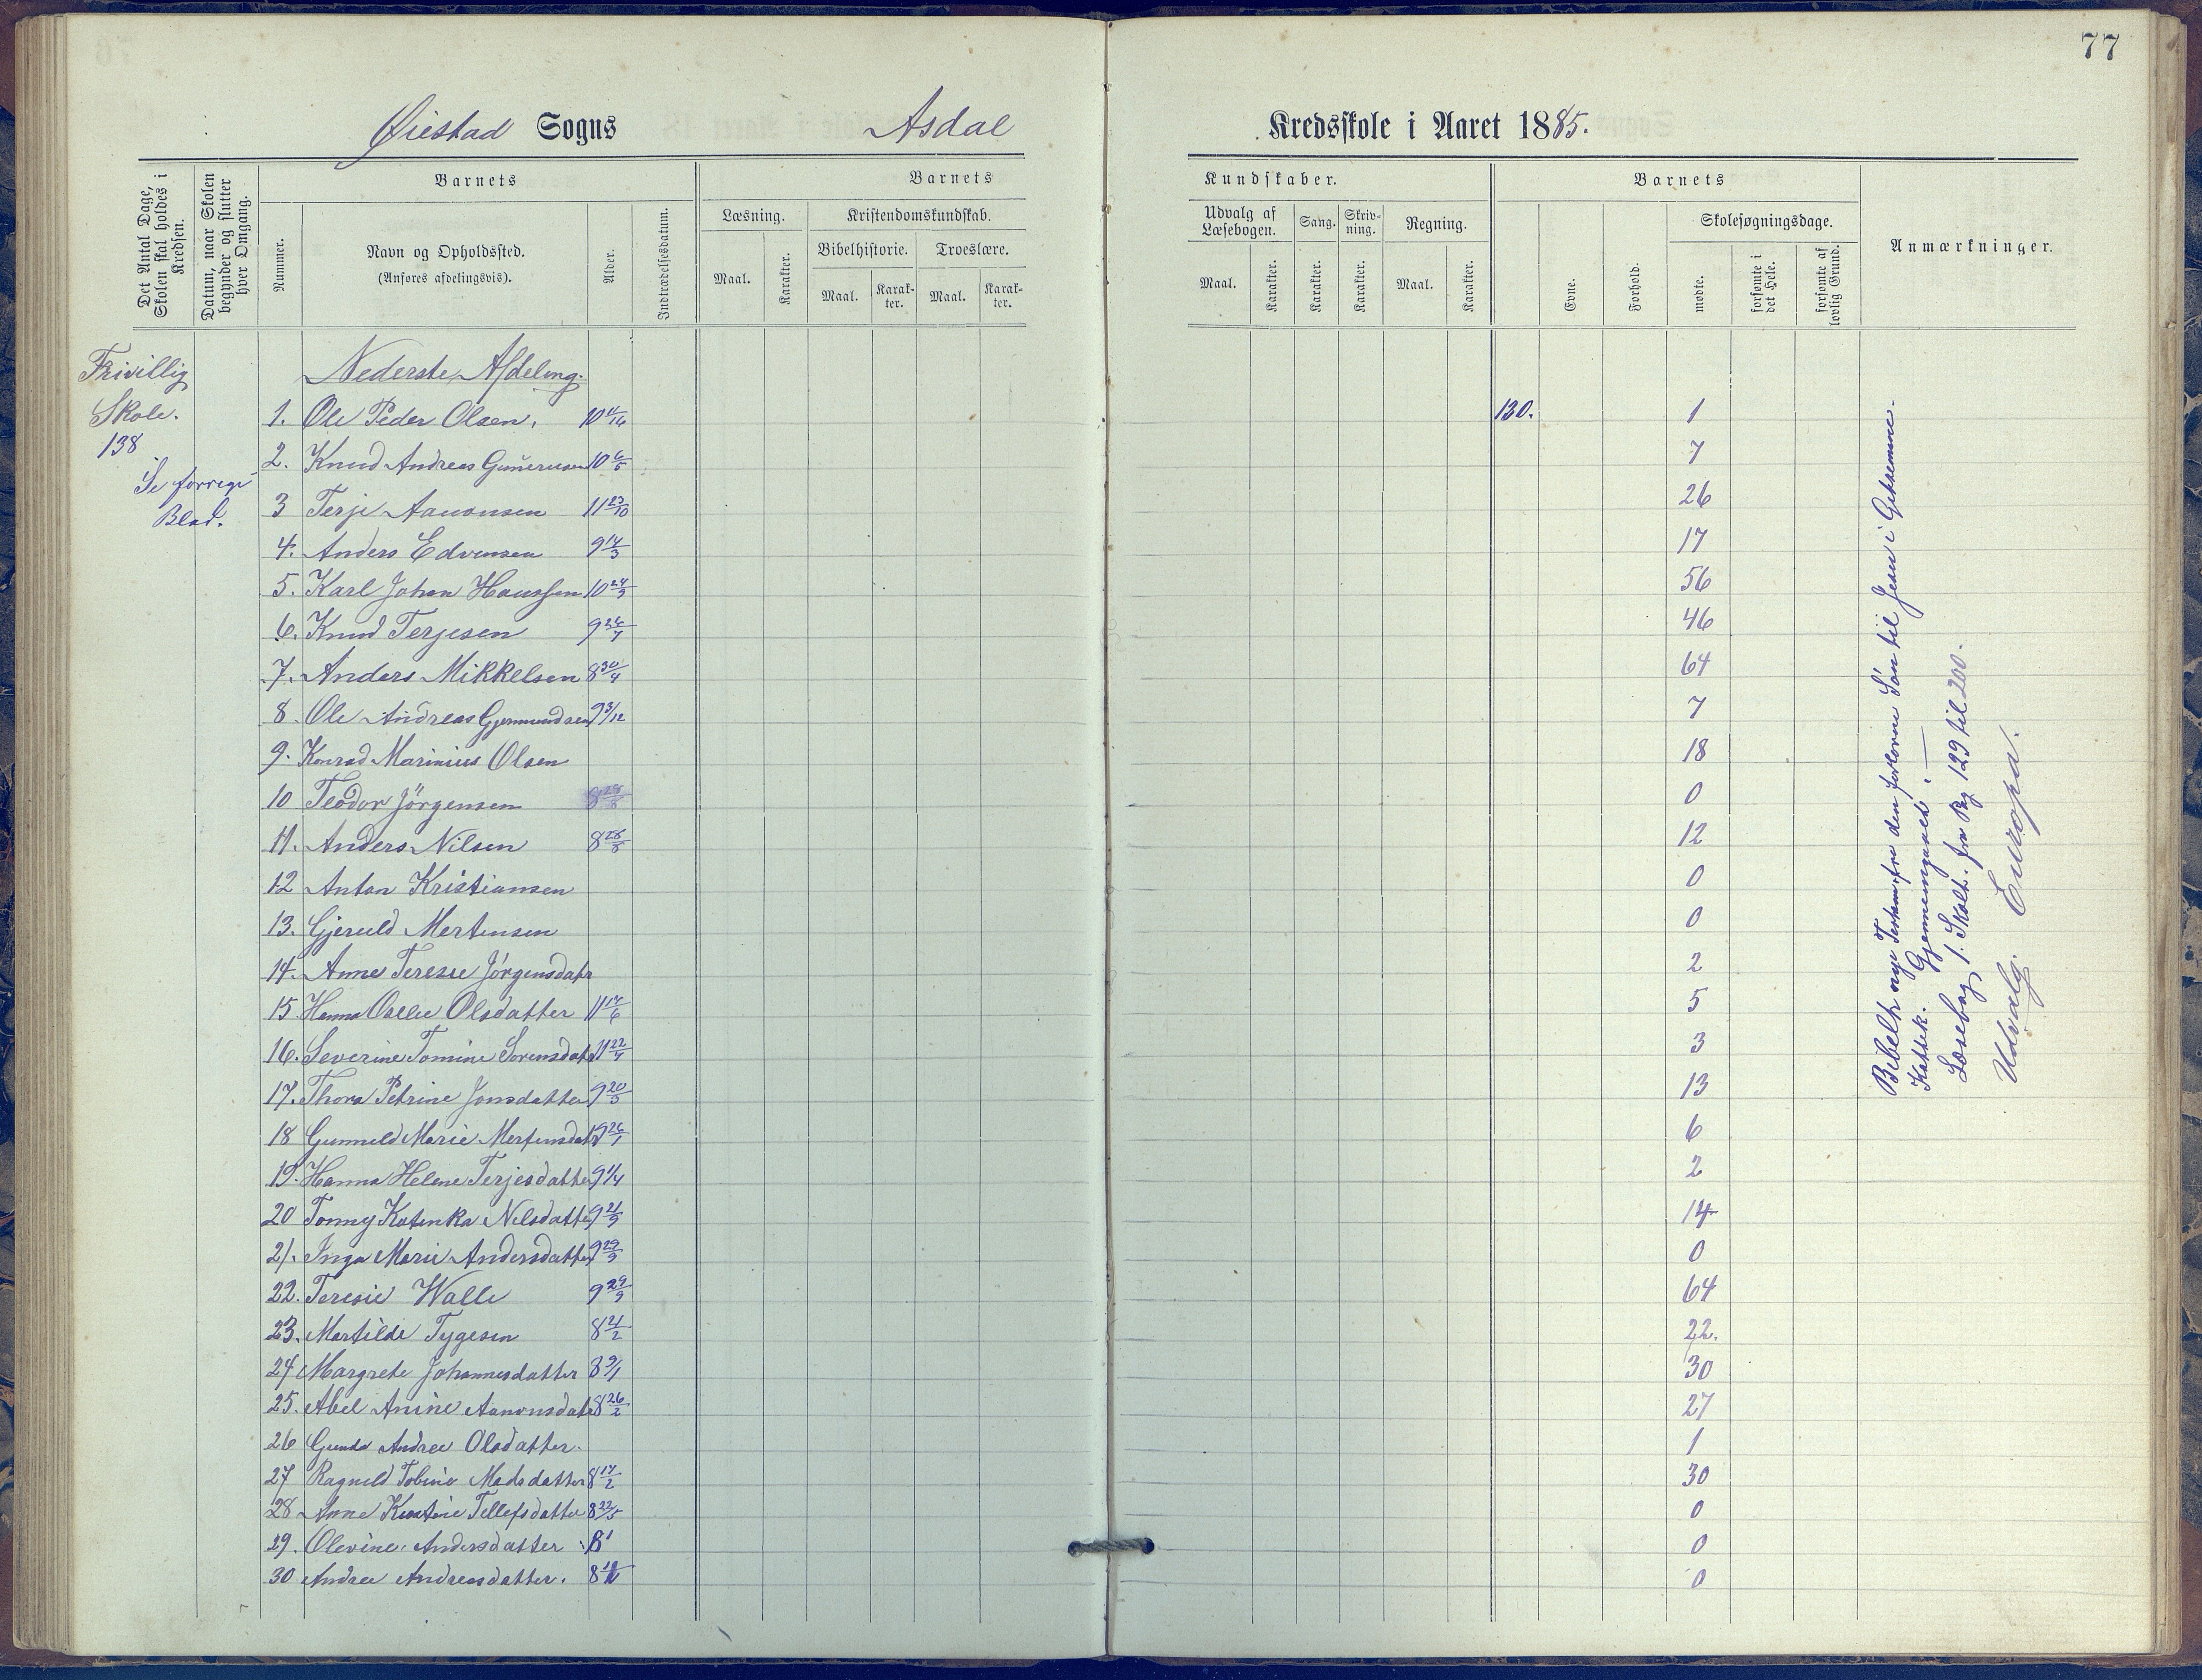 77
Øiestad Sogns Asdal Kredsskole i Aaret 1885.
Det Antal Dage, Skolen skal holdes i Kredsen.
Datum, naar Skolen begynder og slutter hver Omgang.
Barnets
Nummer.
Navn og Opholdssted.
(Anføres afdelingsvis).
Alder.
Indtrædelsesdatum.
Barnets Kundskaber.
Læsning.
Maal. Karakter.
Kristendomskundskab.
Bibelhistorie. Troeslære.
Maal. Karakter. Maal. Karakter.
Udvalg af Læsebogen.
Maal. Karakter.
Sang.
Karakter.
Skrivning.
Karakter.
Regning.
Maal. Karakter.
Barnets
Evne. Forhold.
Skolesøgningsdage.
mødte. forsømte i det Hele. forsømte af lovlig Grund.
Anmærkninger.
Frivillig
Skole.
138
Se forrige
Blad.
Nederste Afdeling.
1. Ole Peder Olsen, 10 130. 1
2. Knud Andreas Gunnerusen 10 6/5 7
3 Terje Aanonsen 11 23/10 26
4. Anders Edvensen 9 14/3 17
5. Karl Johan Hanssen 10 24/9 56
6. Knud Terjesen 9 26/7 46
7. Anders Mikkelsen 8 30/4 64
8. Ole Andreas Gjermundsen 9 3/12 7
9. Konrad Marinius Olsen 18
10 Teodor Jörgensen 8 28/8 0
11. Anders Nilsen 8 28/8 12
12 Anton Kristiansen 0
13. Gjeruld Mertensen 0
14. Anne Teresie Jörgensdatr 2
15. Hanna Olsdatter 11 17/6 5
16. Severine Tomine Sorensdatr 11 22/7 3
17. Thora Petrine Jonsdatter 9 20/3 13
18 Gunnuld Marie Mertensdatr 9 26/1 6
19. Hanna Helene Terjesdatter 9 1/4 2
20 Tonny Katinka Nilsdatter 9 21/9 14
21. Inga Marie Andersdatter 9 29/9 0
22. Teresie Walle 9 29/9 64
23. Martilde Tygesen 8 21/2 22.
24 Margrete Johannesdatter 8 9/1 30
25. Abel Anine Aanonsdatr 8 26/2 27
26 Gunda Andrea Olsdatter. 1
27 Ragnild Tobine Madsdatter 8 17/2 30
28 Anne Kirstine Tellefsdatter 8 22/5 0
29. Olevine Andersdatter 8 0
30 Andrea Andreasdatter. 8 0
Bibelh nye Testam. fra den forlorne Sön til Jesus i Getsemane.
Kattek. Gjennemgaaet.
Læsebog 1. Skolt. fra Pag 129 til 200.
Udvalg. Europa.